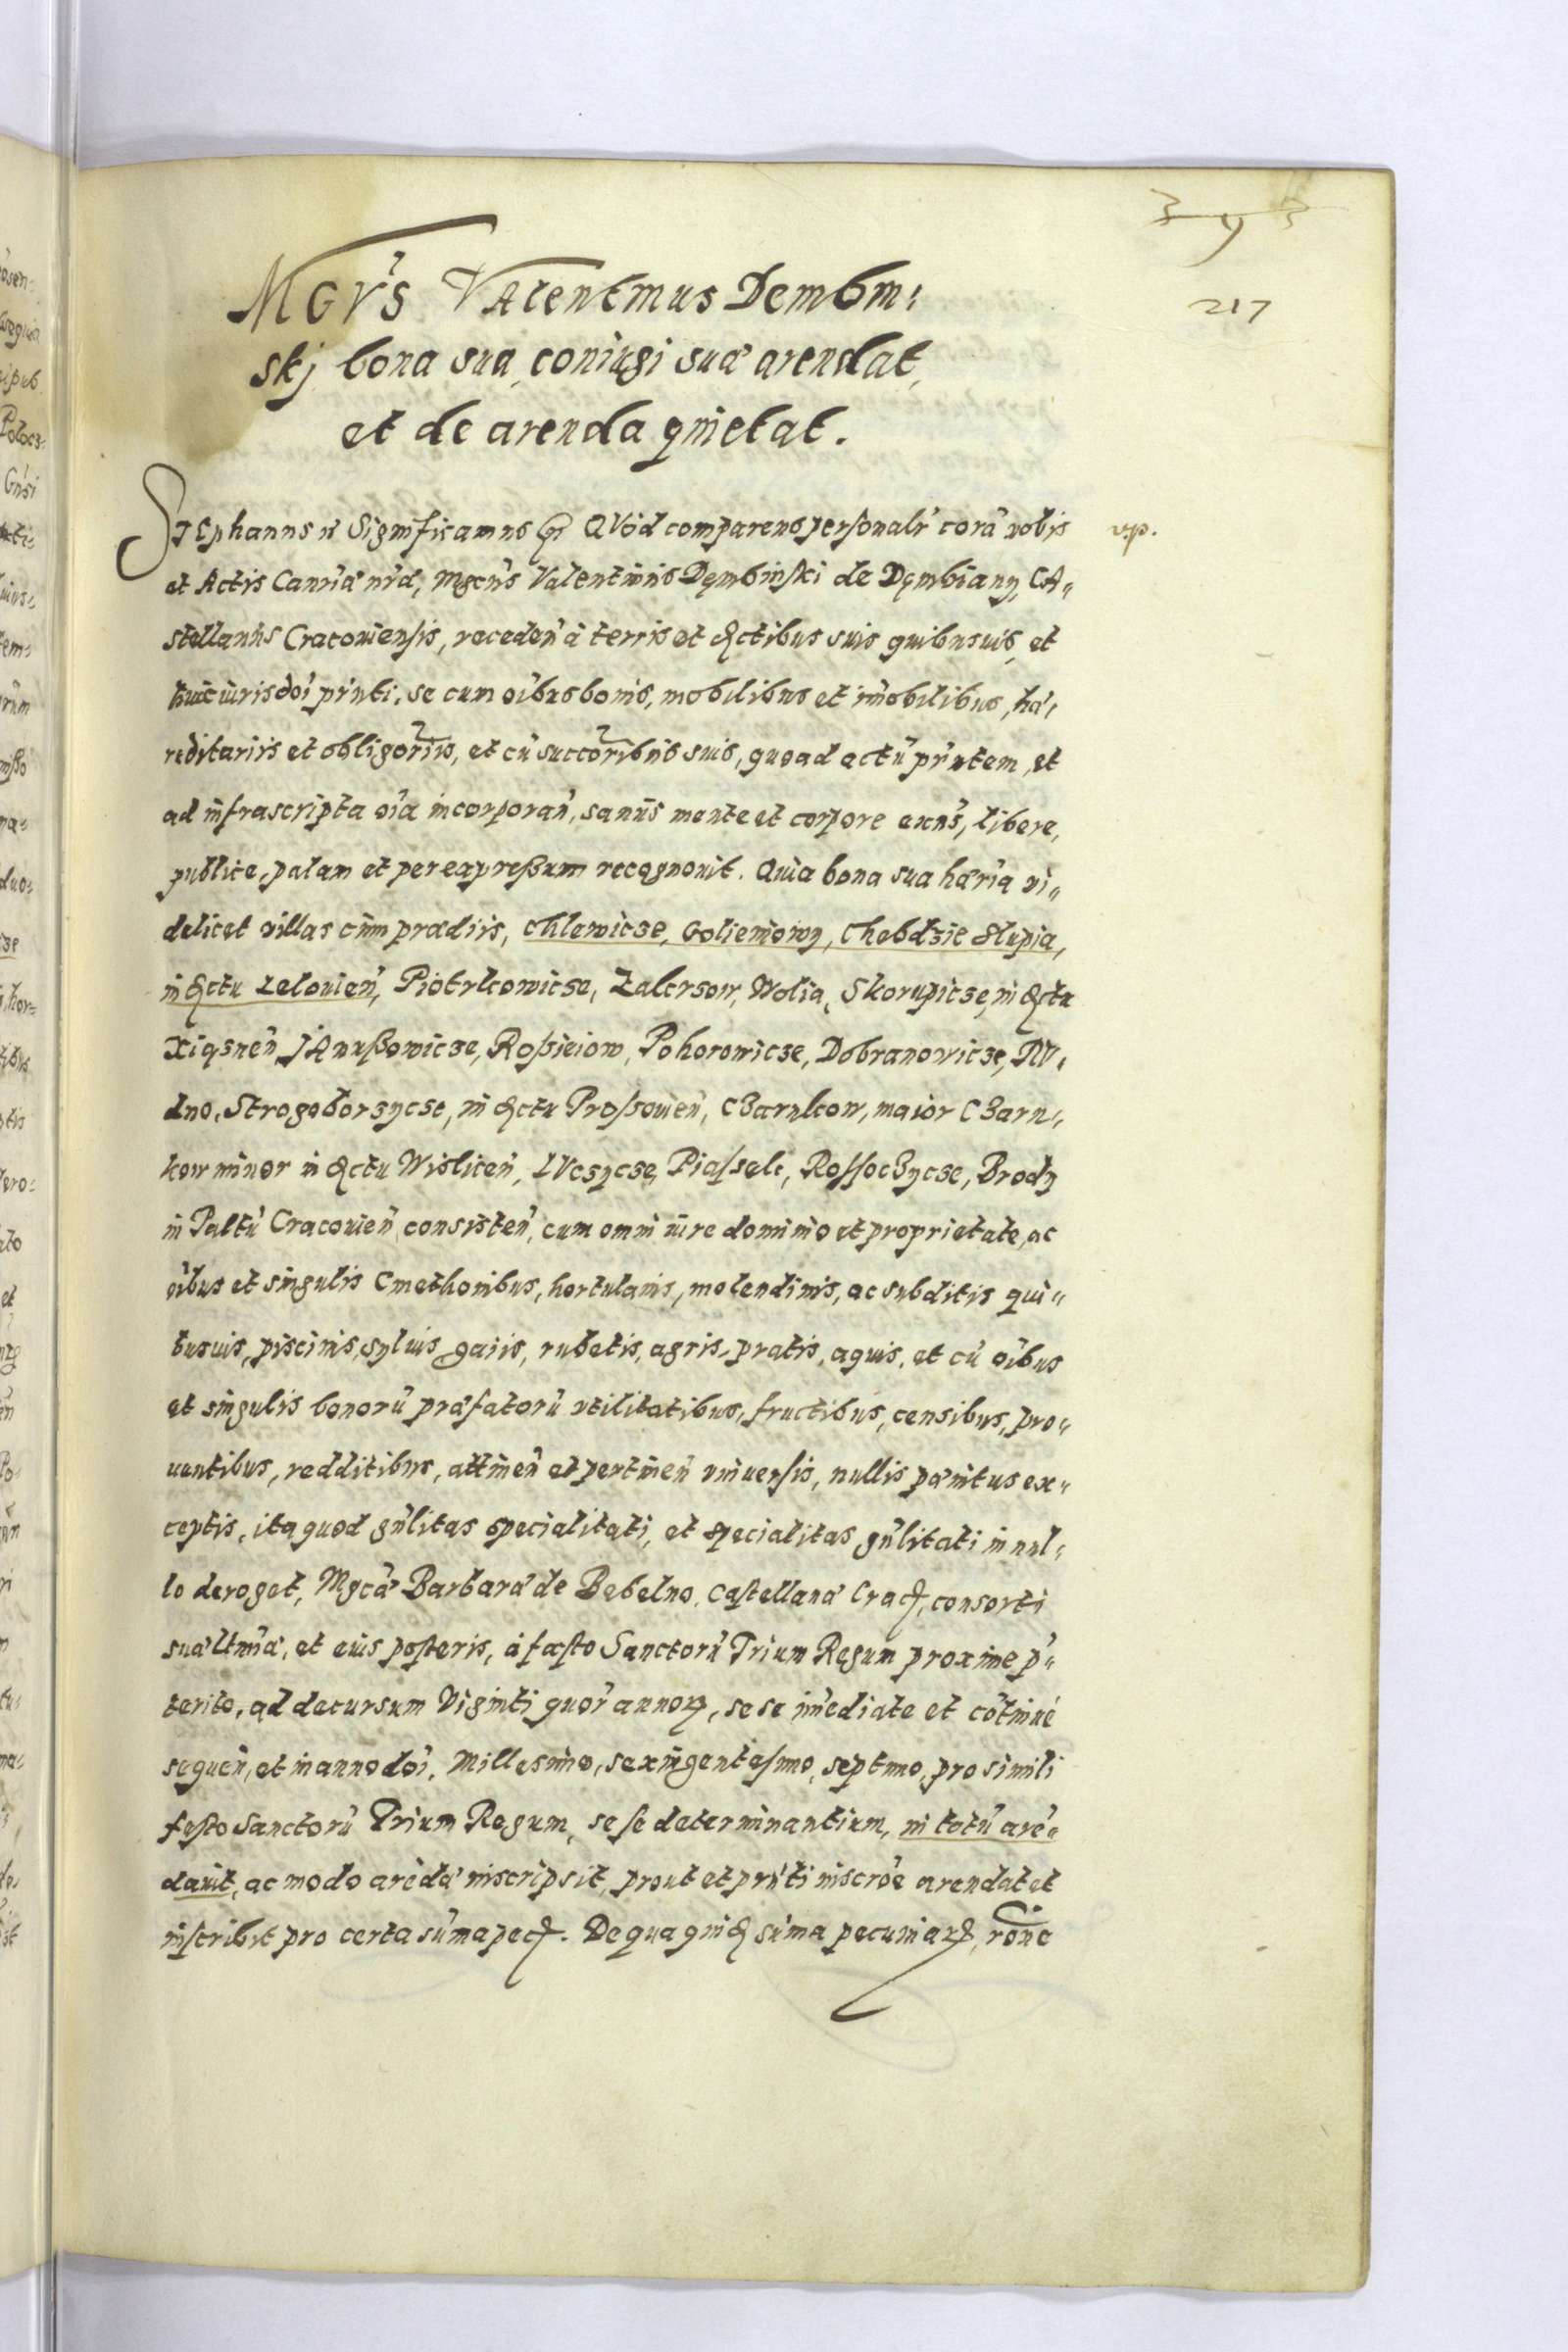 217
Mgcūs Valentinus Dembin:
skj bona sua, coniugi suæ arendat,
et de arenda quietat.
Stephanus etc Significamus etc Quod comparens personalr̃ corā nobis
v.p.
et Actis Cancr̃iæ nr̃æ, Mgcūs Valentinus Dęmbinski de Dęmbiany, Ca„
stellanus Cracouiensis, receden̄ à terris et Dtctibus suis quibusuis, et
huic iurisdoī pn̄ti, se cum oībus bonis, mobilibus et im̄obilibus, hæ„
reditariis et obligoriis, et cū succoribus suis, quoad actū pn̄tem, et
ad infrascripta oīa incorporan̄, sanus mente et corpore exn̄s, libere,
publice, palam et per expreßum recognouit. Quia bona sua hær̃ia vi„
delicet villas cum prædiis, Chlewicze, Golieniowy, Chebdzie Slupia,
in Dtctu Lelouien̄, Piotrkowicze, Zakrzow, Wolia, Skorupicze, in Dtctu
Xiąsnen̄ Janußowicze, Roßieiow, Pohorowicze, Dobranowicze, Ru„
dno, Strogoborzycze, in Dtctu Proszouien̄, Czarnkow, maior Czarn„
kow minor in Dtctu Wislicen̄, Luczycze, Piassek, Rossoczycze, Brody
in Paltū Cracouien̄ consisten̄, cum omni iure dominio et proprietate, ac
oībus et singulis Cmethonibus, hortulanis, molendinis, ac subditis qui„
busuis, piscinis, syluis, gaiis, rubetis, agris, pratis, aquis, et cū oībus
et singulis bonorū præfatorū vtilitatibus, fructibus, censibus, pro„
uentibus, redditibus, attinen̄ et pertinen̄ vniuersis, nullis pænitus ex„
ceptis, ita quod gn̄litas specialitati, et specialitas gn̄litati in nul„
lo deroget, Mgcæ Barbaræ de Bebelno, Castellanæ Crac, consorti
suæ Ltm̄æ, et eius posteris, à fæsto Sanctorū Trium Regum proxime p̄„
terito, ad decursum Viginti quor̄ annor, sese im̄ediate et cōtinué
sequen̄, et in anno doī, Millesimo, sexingentesimo, septimo, pro simili
festo Sanctorū Trium Regum, sese determinantium, in totū arē„
dauit, ac modo arēdæ inscripsit, prout et pn̄ti inscrōe arendat et
inscribit pro certa sūma pec. De qua quid sūma pecuniar, rōne